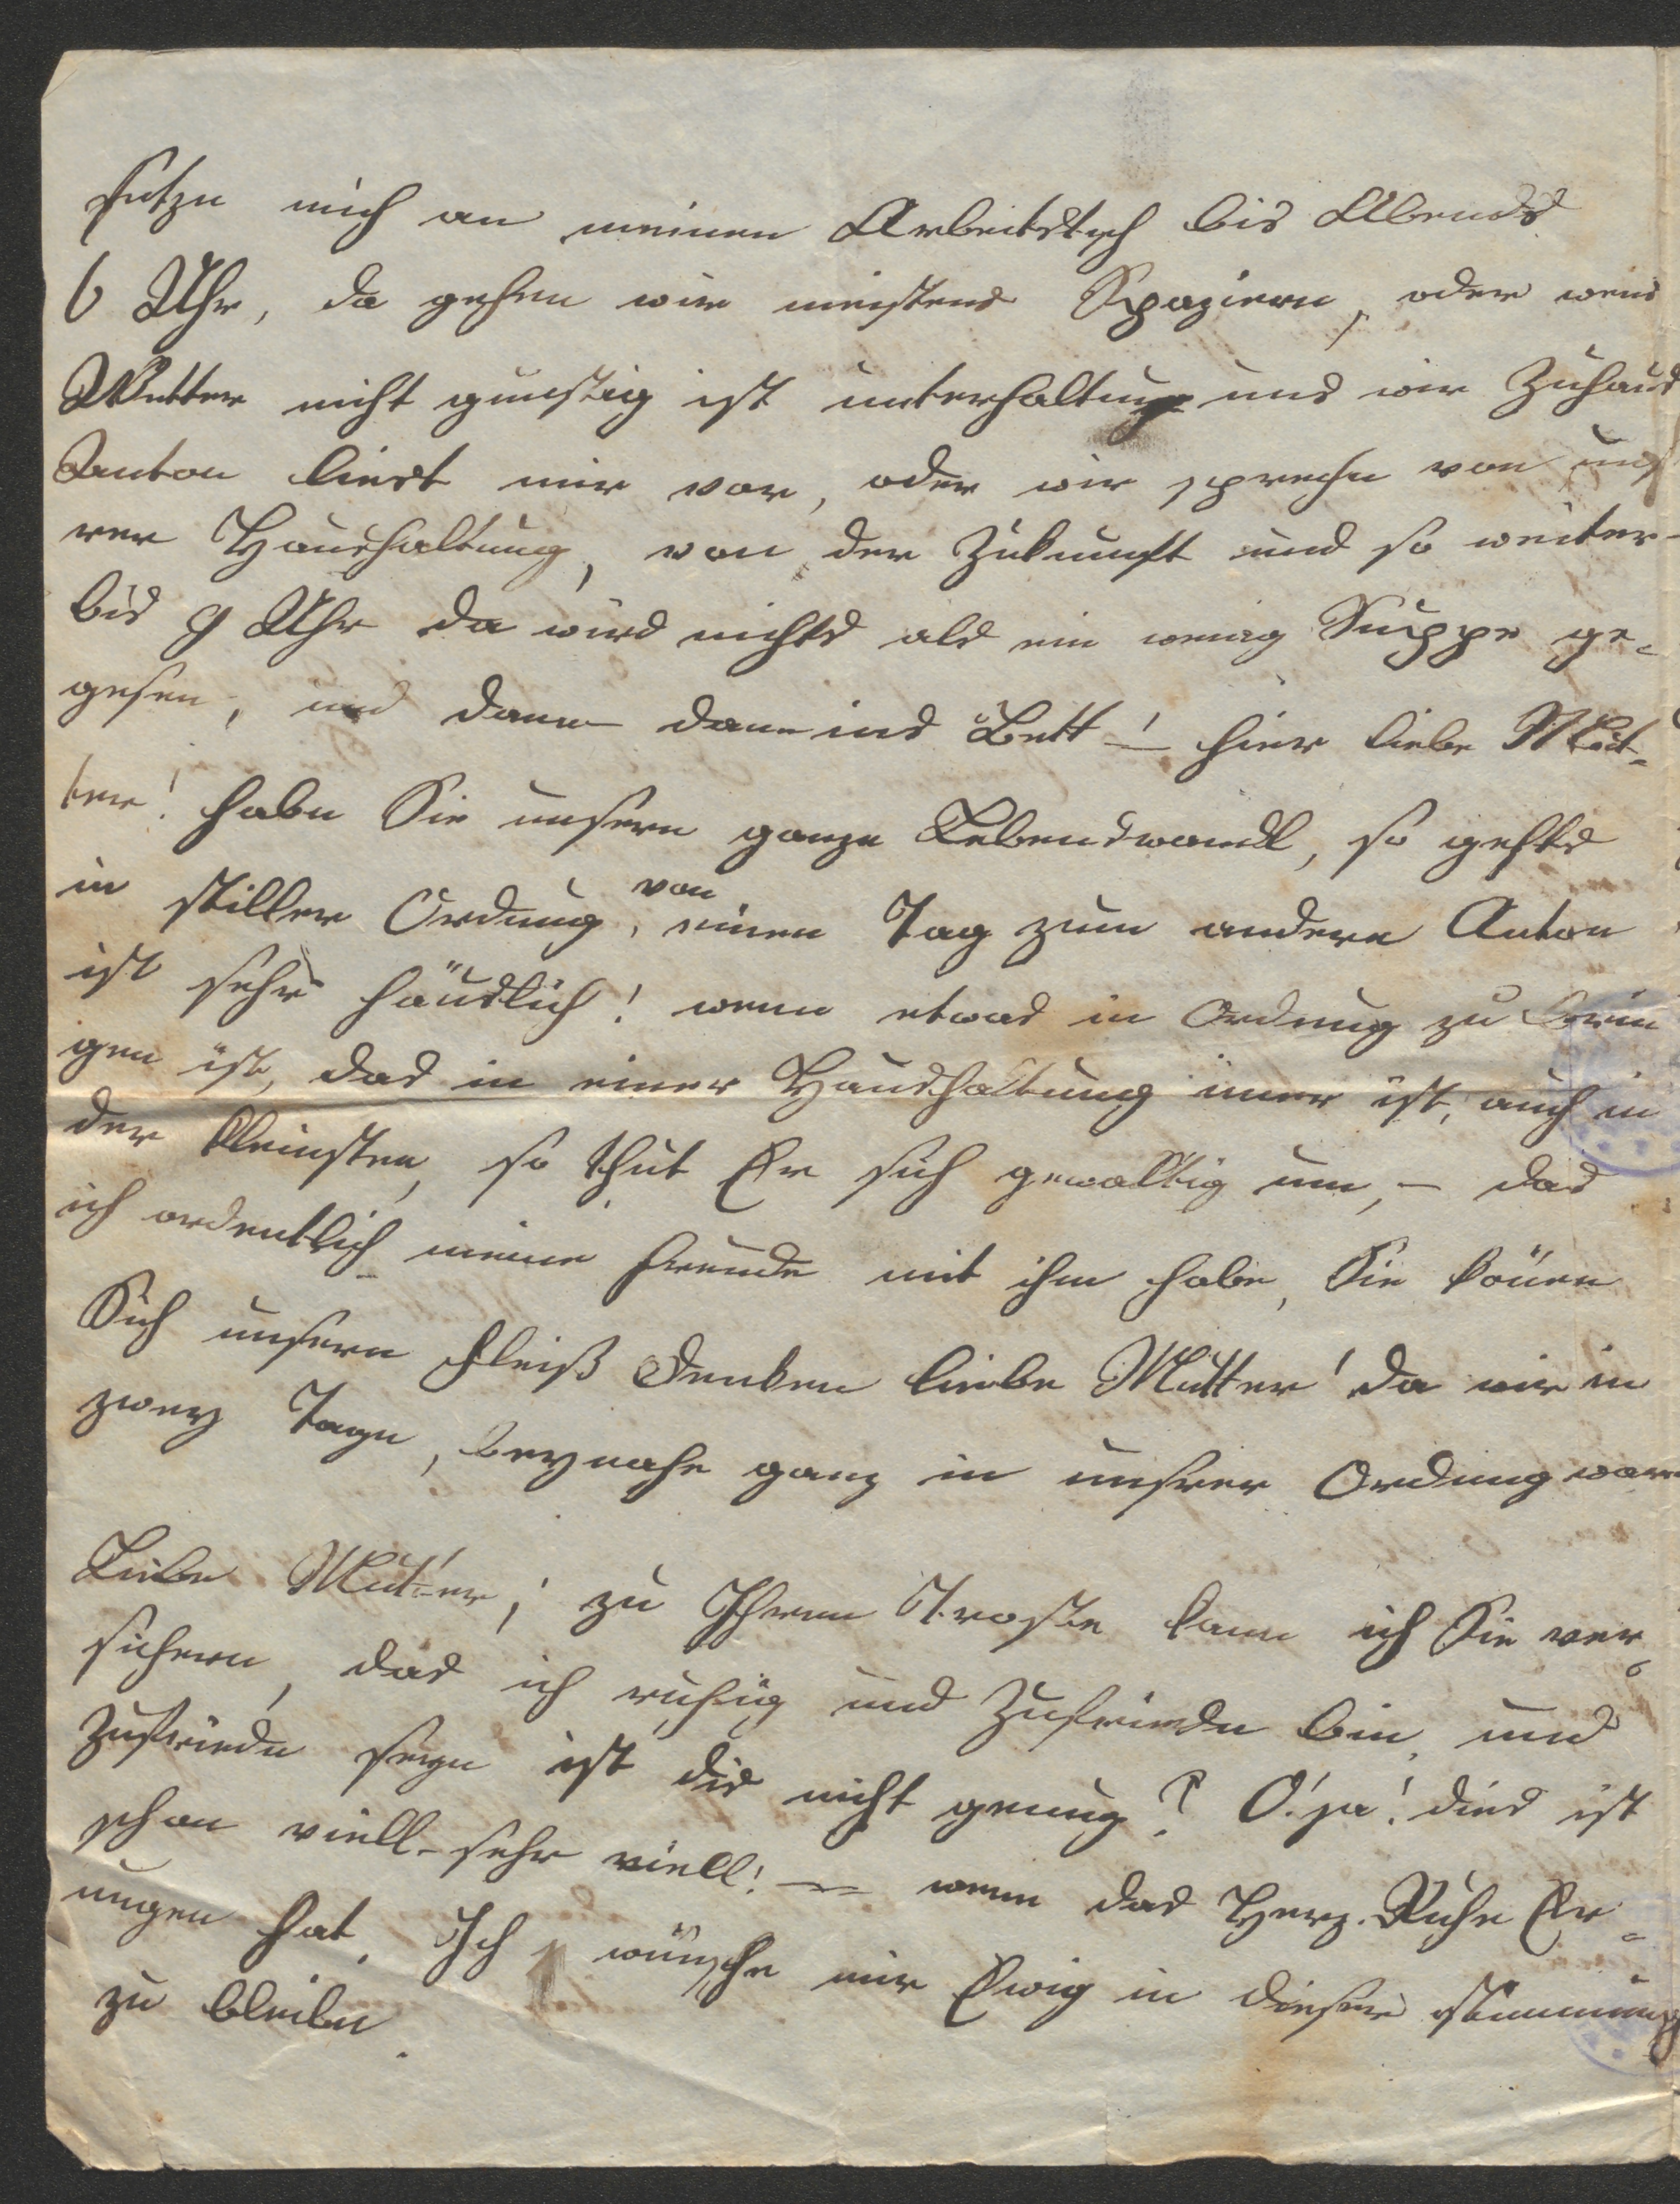 setze mich an meinen Arbeitstisch bis Abends
6 Uhr, da gehen wir meistens Spaziern, oder wens
Wetter nicht gunstig ist unterhalten und wir Zuhaus
Anton liest mir vor, oder wir sprechn von uns
rer Haushaltung, von der Zukunft und so weiter-
bis 9 Uhr da wird nichts als ein wenig Suppe ge-
gesen, und dann dann ins Bett -! hier liebe Mut-
ter! habn Sie unsern ganze Lebenswandl, so gehts
in stiller Ordnug, von einen Tag zum andern Anton
ist sehr häuslich! wenn etwas in Ordnug zu brin
gen ist, das in einer Haushaltung imer ist, auch in
der kleinsten, so thut Er sich gewaltig um, - das
ich ordentlich meine freude mit ihm habe, Sie könen
Sich unsern fleiß Denken liebe Mutter! da wir in
zwey Tagn, beynahe ganz in unsrer Ordnung warn
Liebe Mutter; zu Ihrem Troste kann ich Sie ver-
sichern, das ich ruhig und Zufriedn bin, und
Zufriedn seyn ist dis nicht genug? O! ja! dies ist
schon viell - sehr viell! - wenn das Herz Ruhe Er-
ungen hat. Ich wünsche mir Ewig in dieser stimmung
zu bleibn.